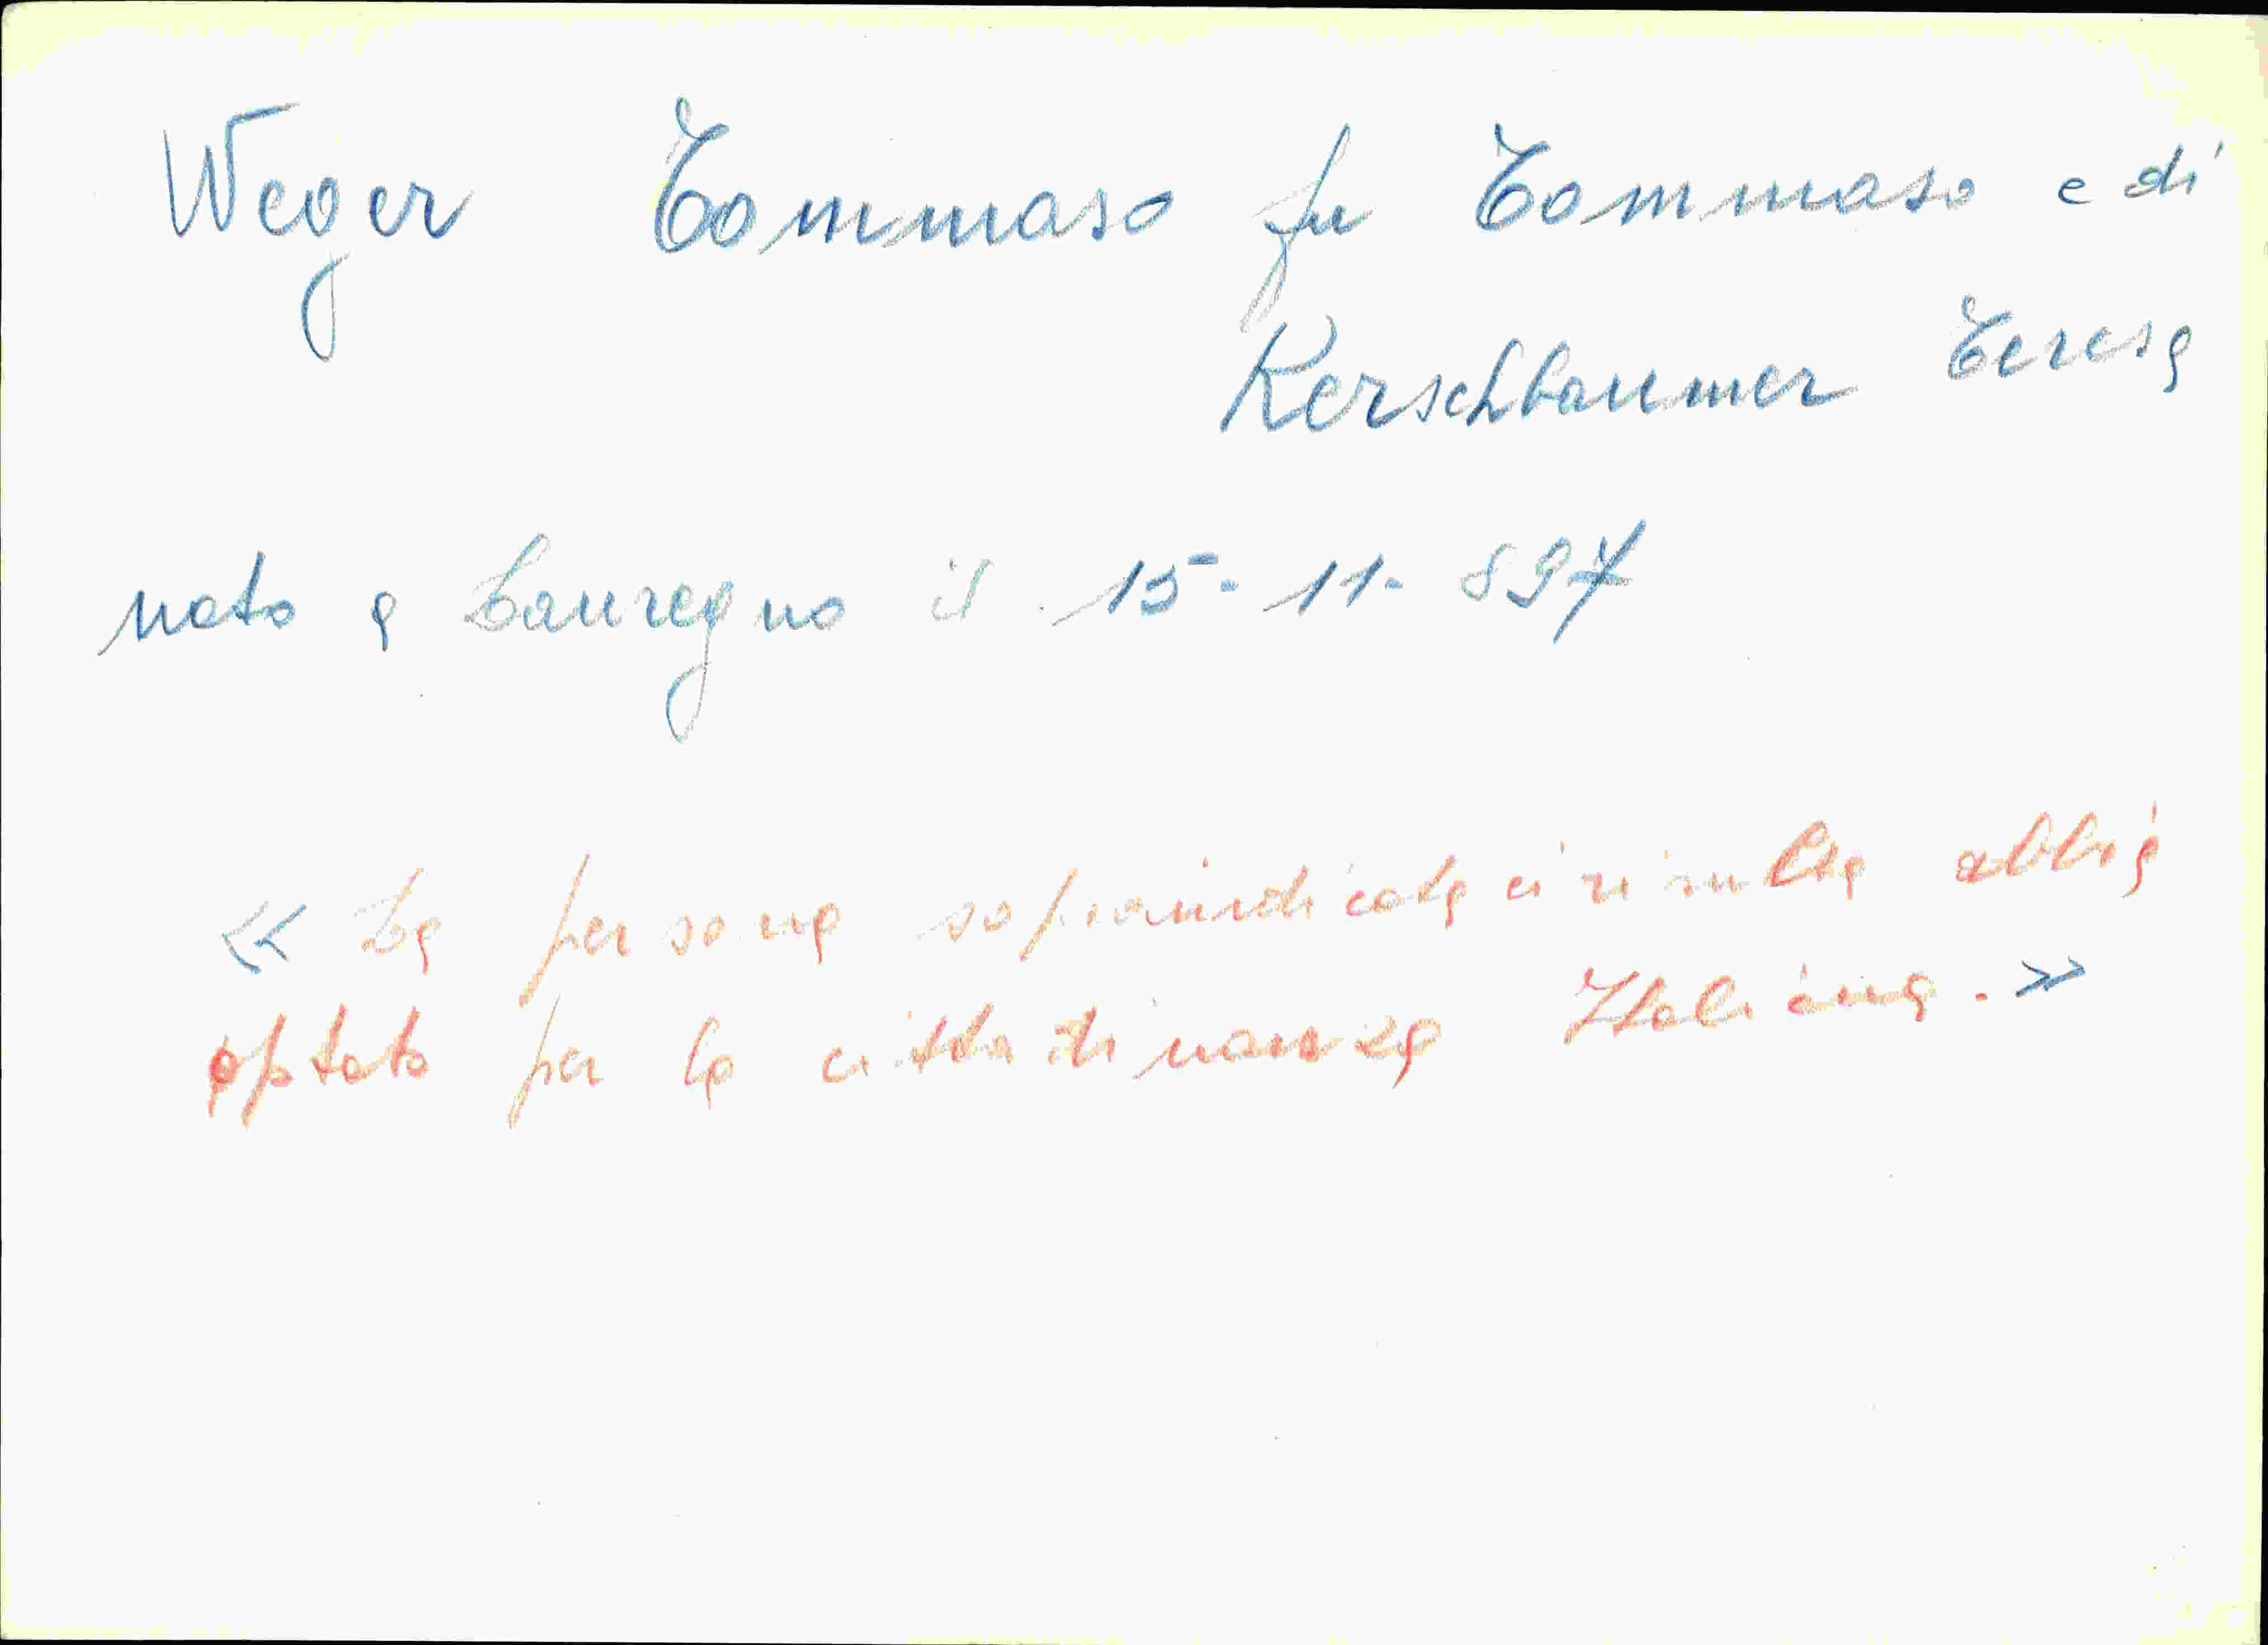 Weger Tommaso fu Tommaso e di
Kerschbaumer Teresa
nato a Lauregno il 15-11-897
« La persona sopraindicata ci risulta abbia
optato per la cittadinanza Italiana. »